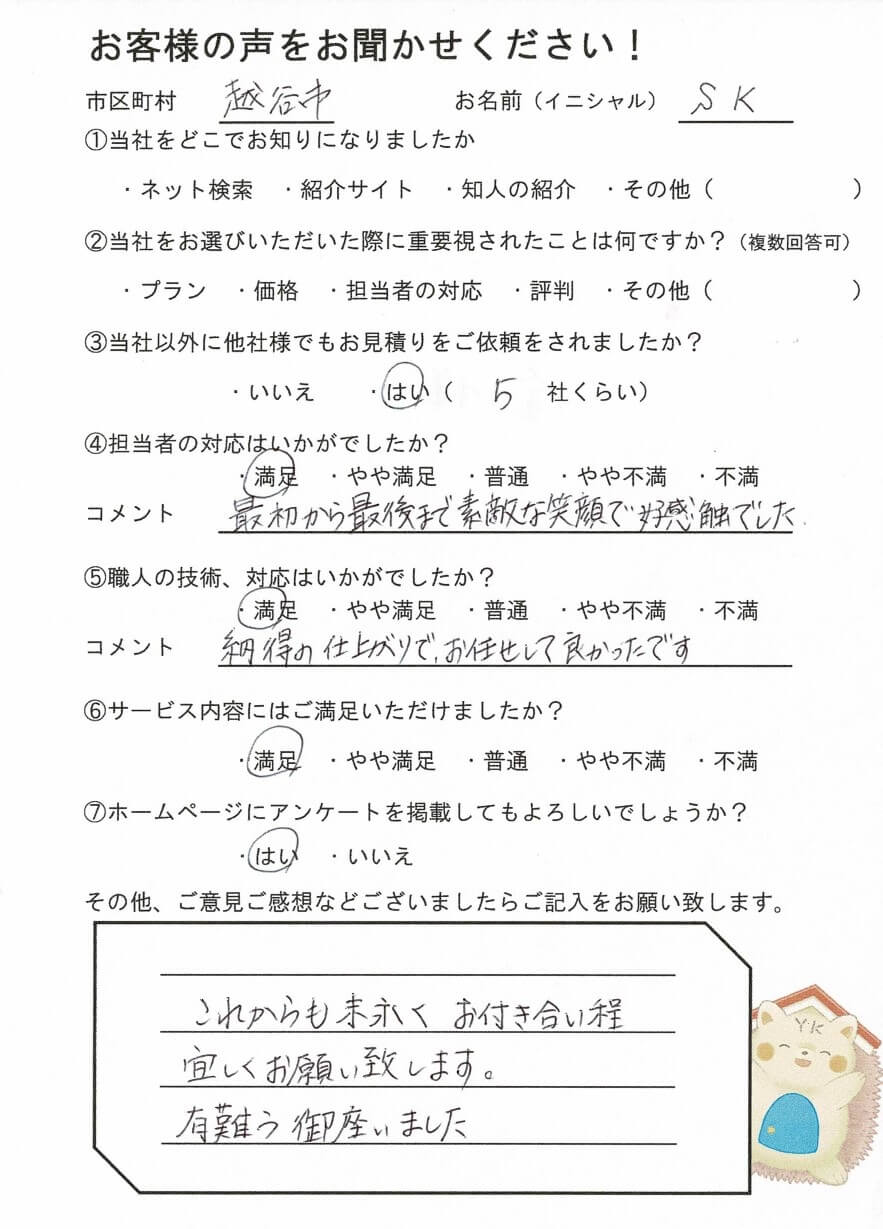 お客様の声をお聞かせください！
市区町村 越谷市 お名前（イニシャル） SK
①当社をどこでお知りになりましたか
・ネット検索 ・紹介サイト ・知人の紹介 ・その他（ ）
②当社をお選びいただいた際に重要視されたことは何ですか？（複数回答可）
・プラン ・価格 ・担当者の対応 ・評判 ・その他（ ）
③当社以外に他社様でもお見積りをご依頼をされましたか？
・いいえ ・はい（ 5 社くらい）
④担当者の対応はいかがでしたか？
・満足 ・やや満足 ・普通 ・やや不満 ・不満
コメント 最初から最後まで素敵な笑顔で好感触でした
⑤職人の技術、対応はいかがでしたか？
・満足 ・やや満足 ・普通 ・やや不満 ・不満
コメント 納得の仕上がりで、お任せして良かったです
⑥サービス内容にはご満足いただけましたか？
・満足 ・やや満足 ・普通 ・やや不満 ・不満
⑦ホームページにアンケートを掲載してもよろしいでしょうか？
・はい ・いいえ
その他、ご意見ご感想などございましたらご記入をお願い致します。
これからも末永くお付き合い程
宜しくお願い致します。
有難う御座いました
YK